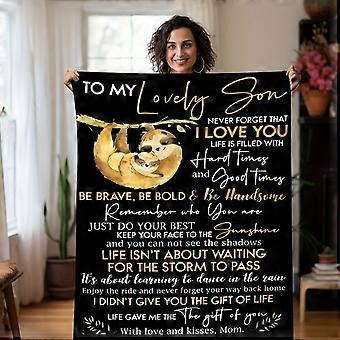 TO MY Lovely Son
NEVER FORGET THAT
I LOVE YOU
LIFE IS FILLED WITH
Hard Times
and Good Times
BE BRAVE, BE BOLD & Be Handsome
Remember who You are
JUST DO YOUR BEST
KEEP YOUR FACE TO THE Sunshine
and you can not see the shadows
LIFE ISN'T ABOUT WAITING
FOR THE STORM TO PASS
It's about learning to dance in the rain
Enjoy the ride and never forget your way back home
I DIDN'T GIVE YOU THE GIFT OF LIFE
LIFE GAVE ME THE The gift of you
With love and kisses, Mom.